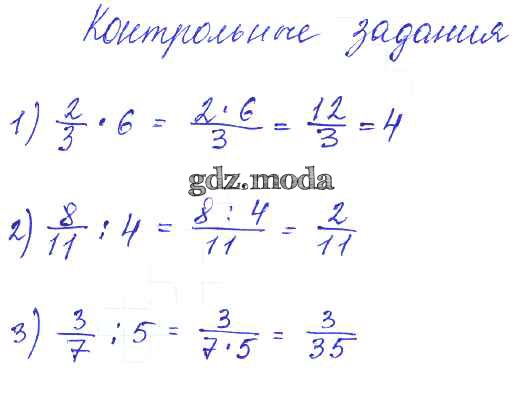 Контрольные задания
1) 2/3 · 6 = 2 · 6/3 = 12/3 = 4
gdz.moda
2) 8/11 : 4 = 8 : 4/11 = 2/11
3) 3/7 : 5 = 3/7 · 5 = 3/35